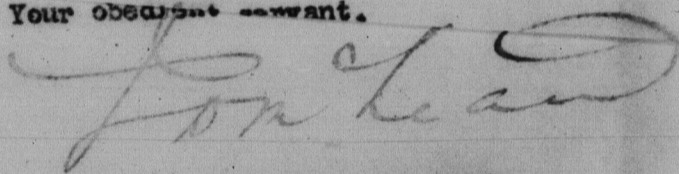 Your obedient servant.
Tom Lean